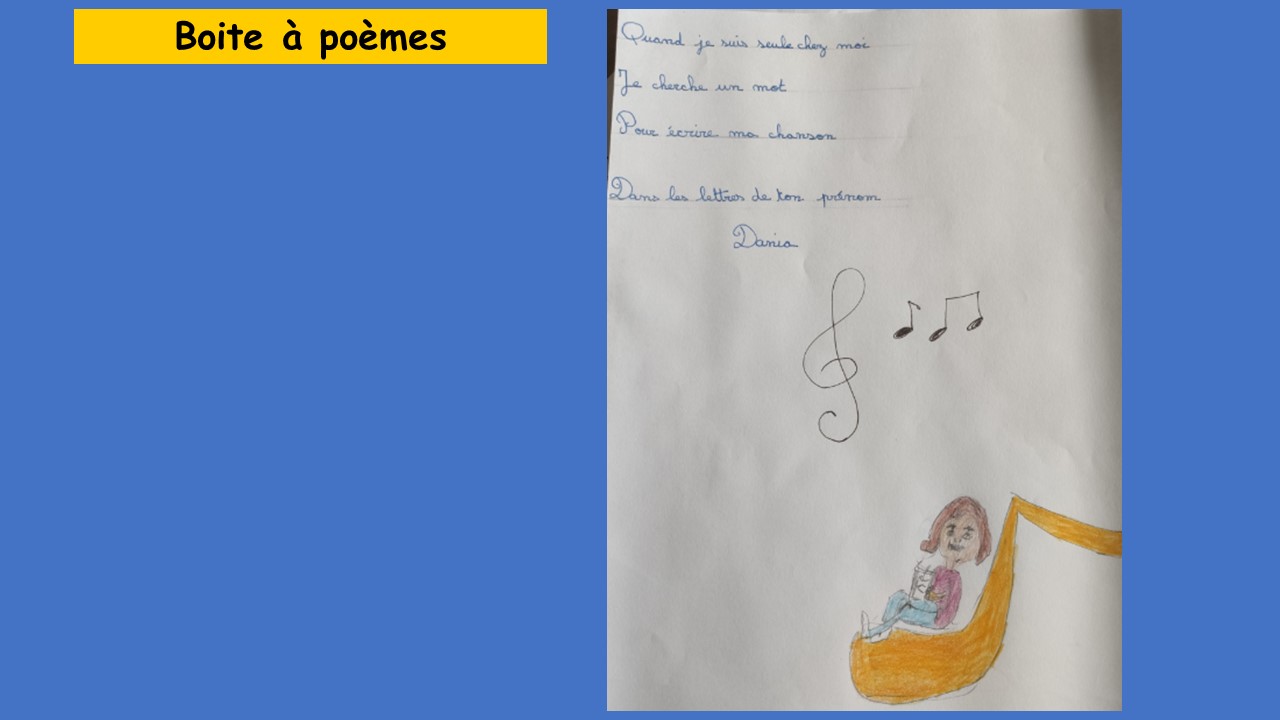 Boite à poèmes
Quand je suis seule chez moi
Je cherche un mot
Pour écrire ma chanson
Dans les lettres de ton prénom
Dania